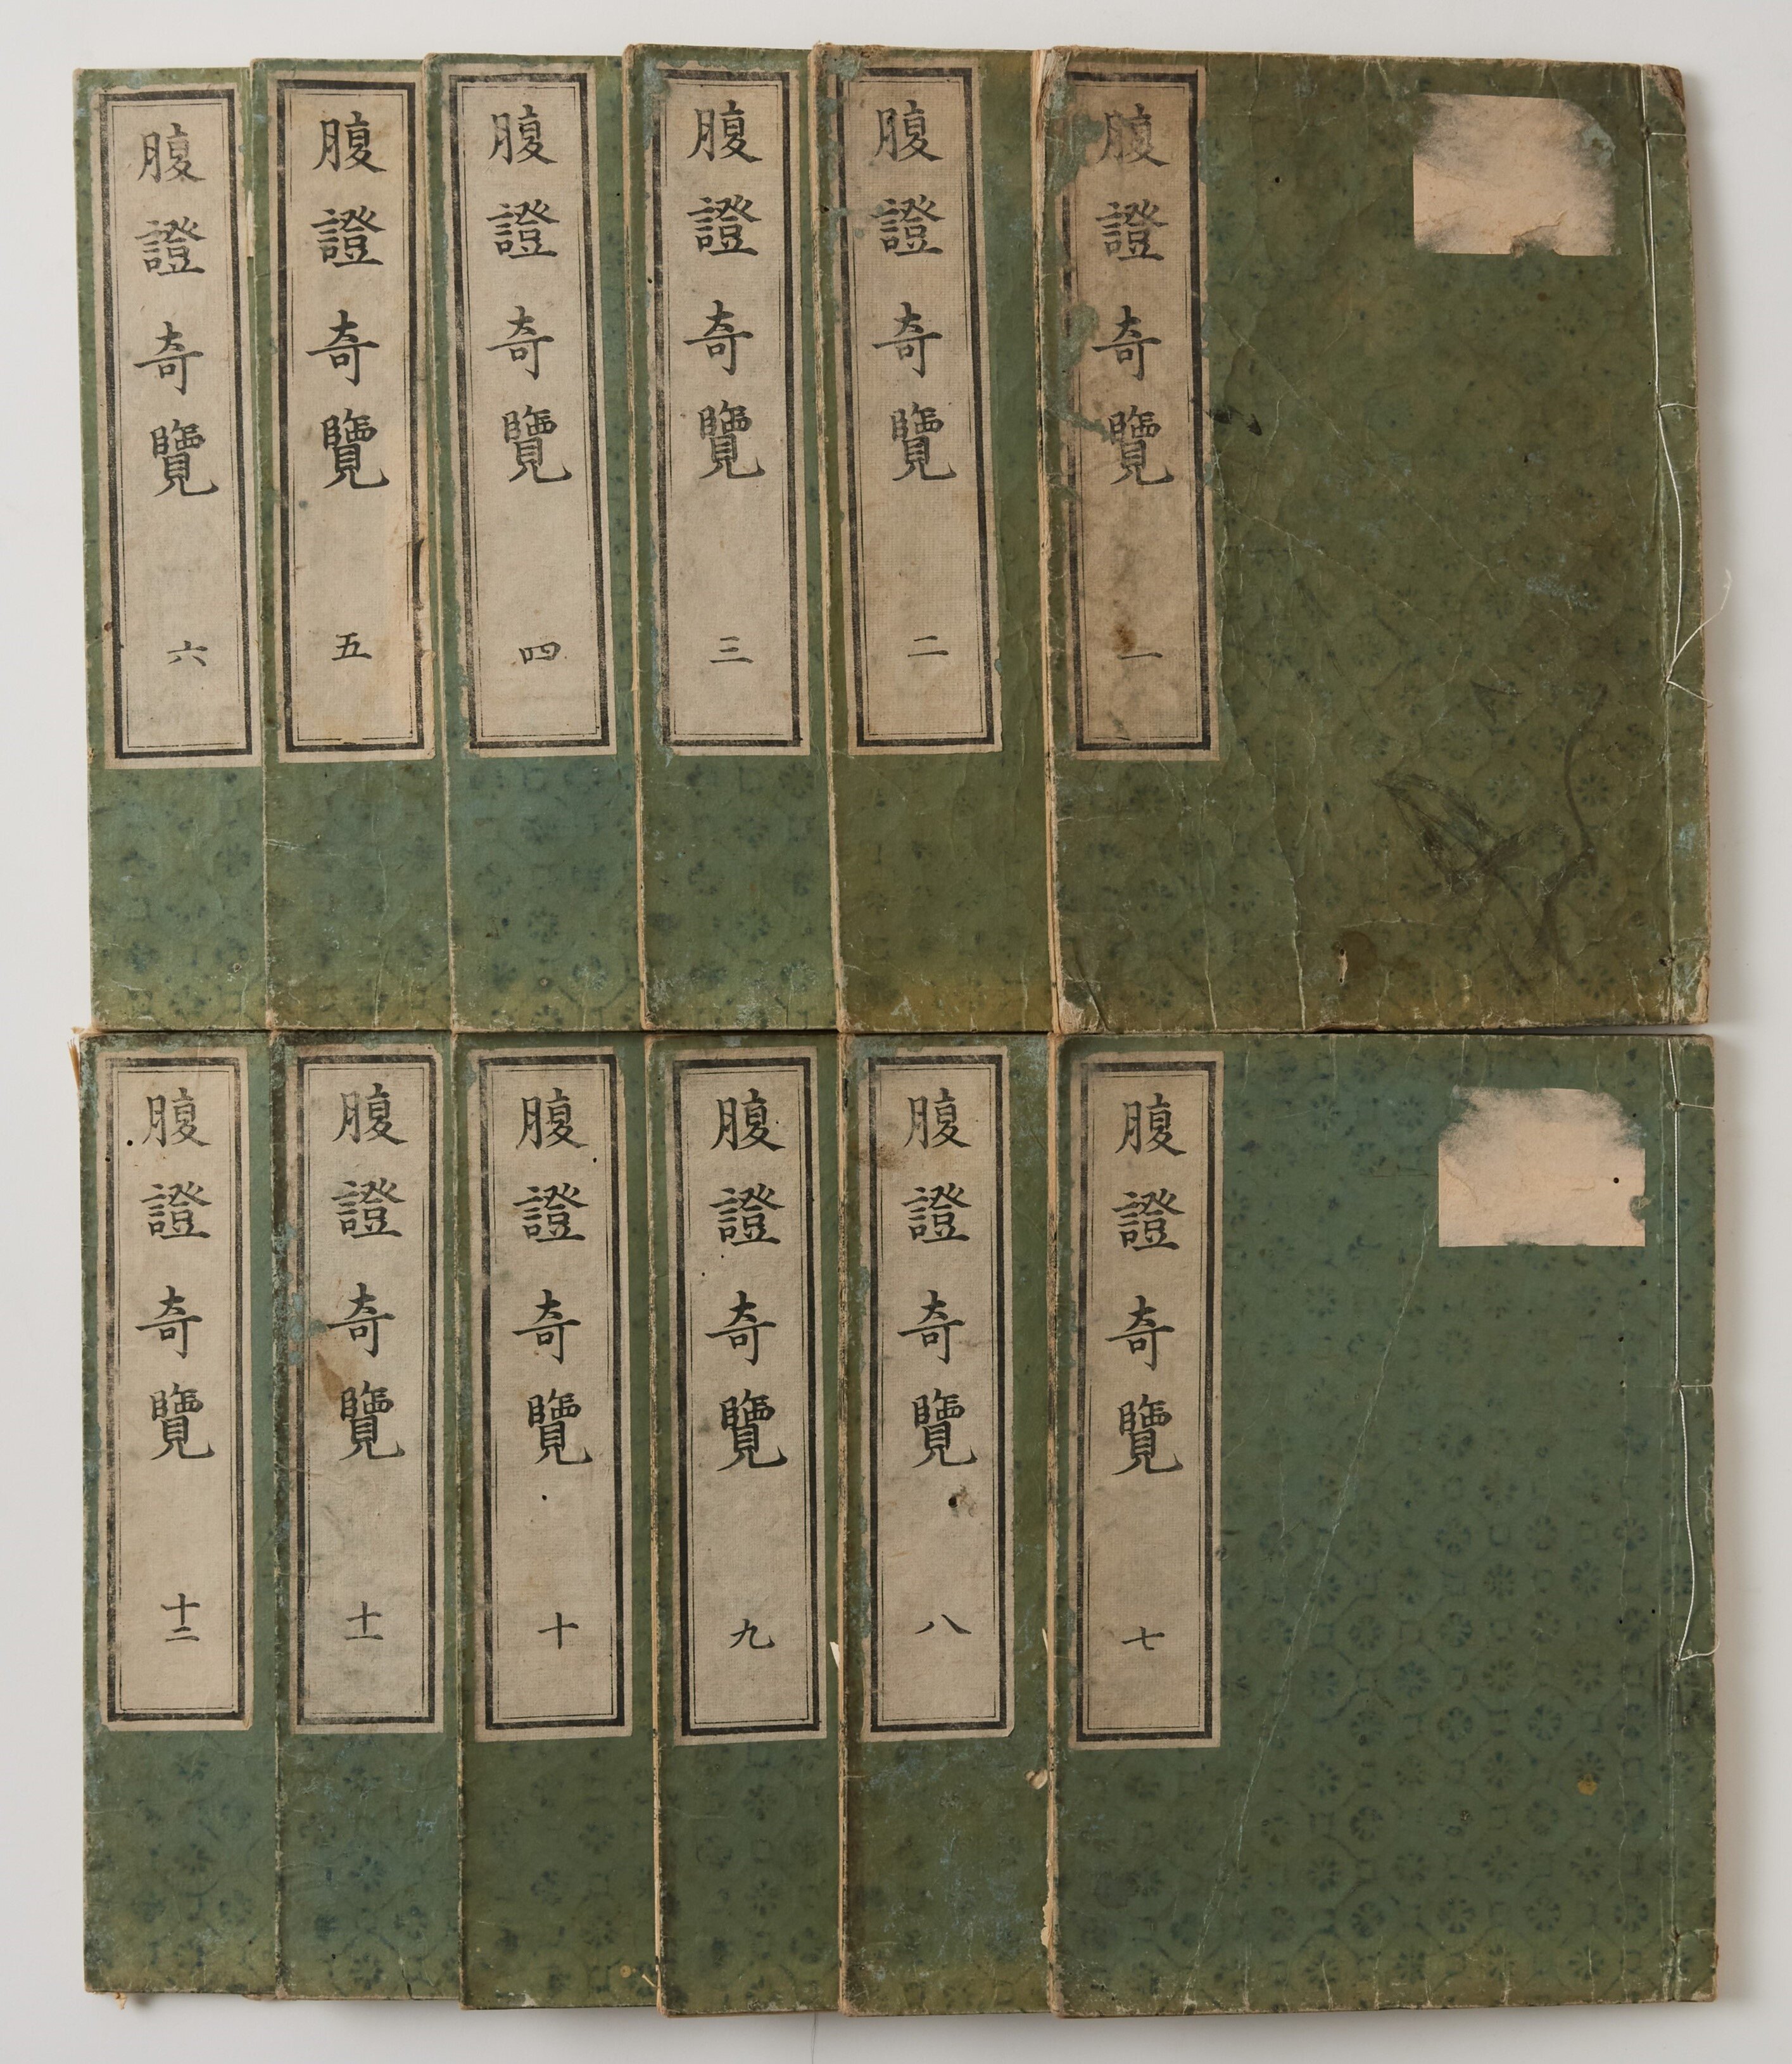 腹證奇覽 一
腹證奇覽 二
腹證奇覽 三
腹證奇覽 四
腹證奇覽 五
腹證奇覽 六
腹證奇覽 七
腹證奇覽 八
腹證奇覽 九
腹證奇覽 十
腹證奇覽 十一
腹證奇覽 十二